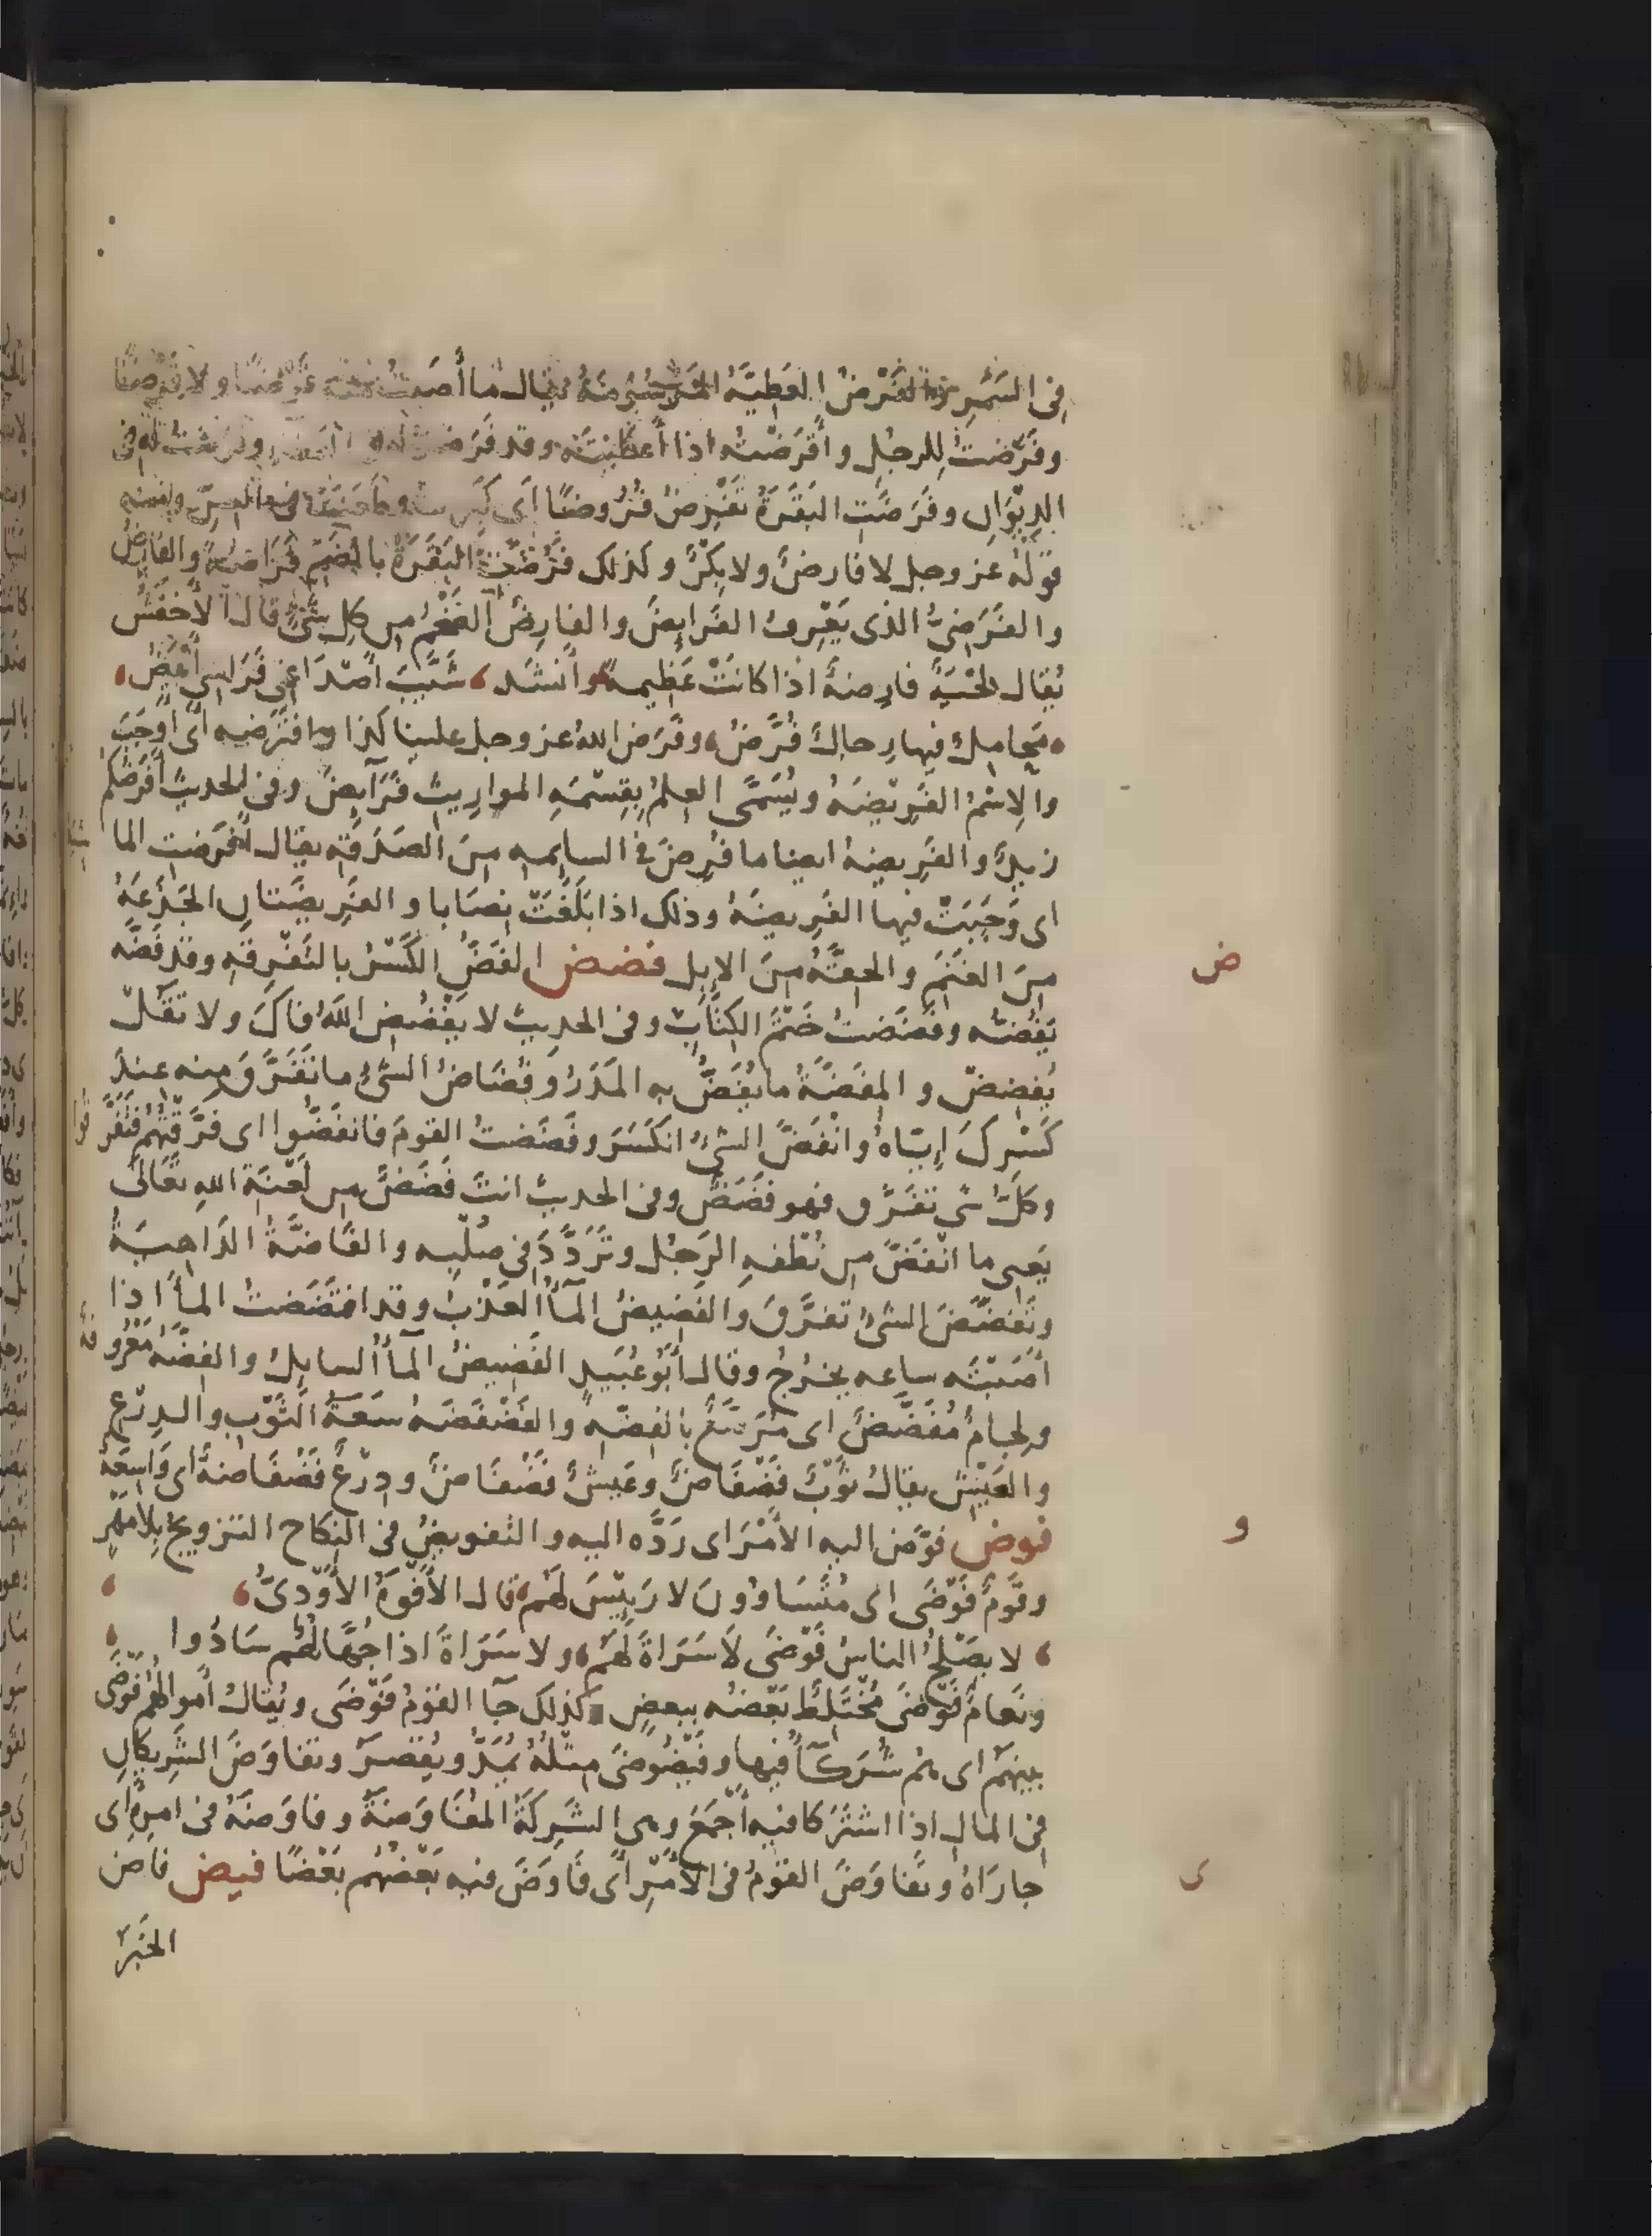 في السَّيْرِ والفَرْضُ العَطِيَّةُ المَرْسُومَةُ يقال ما أصَبْتُ منه فَرْضًا ولا قَرْضًا
وفَرَضْتُ لِلرجُلِ وأَفْرَضْتُه اذا أعطَيْتَه وقد فَرَضْتُ له في
الدِيْوَانِ وفَرَضَتِ البَقَرَةُ تَفْرِضُ فُرُوضًا أى كَبِرَتْ وطَعَنَتْ في السِنّ ومنه
قَوْلُه عَز وجل لا فارِضٌ ولا بِكْرٌ وكذلك فَرُضَتِ البَقَرَةُ بالضَمِّ فَرَاضَةً والفَارِضُ
والفَرَضِيُّ الذى يَعْرِفُ الفَرَايِضَ والفارِضُ الضَخْمُ مِن كلِ شَىْءٍ قال الأخْفَشُ
يُقال لِحْيَةٌ فارِضَةٌ اذا كانَتْ عَظِيمةً وأنشَد شَيَّبَ أصْدَاغِى فَرَاسِى أبْيَضُ
مَحامِلٌ فيها رِجالٌ فُرَّضُ وفَرَض اللهُ عز وجل علينا كذا وافتَرَضه أى أوجَبَ
والاِسْمُ الفَرِيْضَةُ ويُسَمَّى العِلمُ بِقِسْمَةِ المواريثِ فَرَايِضَ وفي الحديث أفرَضُكم
زيدٌ والفَرِيضةُ ايضا ما فُرِضَ في السايمه مِنَ الصَدَقَةِ يقال أفرَضتِ الماشية
اى وَجَبَتْ فيها الفَرِيضَةُ وذلك اذا بَلَغَتْ نِصَابا والفَرِيضَتانِ الجَذَعَةُ
مِنَ الغَنَمِ والحِقَّةُ مِنَ الاِبِلِ فضض الفَضُّ الكَسْرُ بالتَفْرِقَهِ وقد فَضَّه
يَفُضُّه وفَضَضتُ خَتْمَ الكِتَابِ وفي الحديث لا يَفْضُضِ اللهُ فاكَ ولا تَقُلْ
يُفضِضْ والمِفَضَّةُ ما يُفَضُّ به المَدَرُ وفُضَاضُ الشئِ ما تَفَرَّقَ مِنه عِندَ
كَسْرِكَ اِيَّاهُ وانْفَضَّ الشئُ انكَسَرَ وفَضَضتُ القومَ فانفَضُّوا اى فَرَّقْتُهُم فَتَفَرَّقوا
وكلُّ شَىٍ تَفَرَّقَ فهو فَضَضٌ وفي الحديث انتَ فَضَضٌ مِن لَعْنَةِ اللهِ تَعَالَى
يَعنِى ما انْفَضَّ مِن نُطْفَهِ الرَجُلِ وتَرَدَّدَ في صُلْبِه والفَاضَّةُ الدَاهِيَةُ
وتَفَضَّضَ الشئُ تَفرَّقَ والفَضِيضُ المآءُ العَذْبُ وقد افتَضَضتُ المآءَ اذا
اَصَبْتَه ساعه يخرُجُ وقال أبُو عُبَيدٍ الفَضِيضُ المآءُ السايِلُ والفِضَّةُ مَعْرُوفة
ولِجامٌ مُفَضَّضٌ اى مُرَصَّعٌ بالفِضّهِ والفَضْفَضَهُ سَعَةُ الثَوْبِ والدِرْعِ
والعَيْشِ يقالُ ثَوْبٌ فَضْفَاضٌ وعَيشٌ فَضْفَاضٌ ودِرْعٌ فَضْفَاضةٌ اى وَاسِعَةٌ
فوض فوَّض اليه الأمْرَ اى رَدَّه اليه والتفويضُ في النِكاح التزويجُ بِلا مَهْرٍ
وقَومٌ فَوْضَى اى مُتَسَاوُونَ لا رَيِيْسَ لَهُم قال الأفْوَهُ الأَوْدِىُّ
لا يصْلُحُ الناسُ فَوْضَى لاَ سَرَاةَ لَهُم ولا سَرَاةَ اذا جُهَّالُهُم سَادُوا
ونَعامٌ فَوْضَى مُخْتَلِطٌ بَعْضُه ببعضٍ وكذلك جآ القَوْمُ فَوْضَى ويُقالُ أموالهُم فَوْضَى
بينهَم اى هُم شُرَكآءُ فيها وفَيْضُوضَى مِثلُهُ يُمَدُّ ويُقصَرُ وتفاوَضَ الشَرِيكانِ
في المالِ اذا اشتَرَكا فيه أجْمَعَ وهى الشَرِكَةُ المُفَاوَضَةُ وفاوَضَهُ في امرِه اى
جارَاهُ وتفاوَضَ القَوْمُ في الأمْرِ أى فَاوَضَ فيه بَعْضُهم بَعْضًا فيض فاض
الخَبَرُ
ض
و
ى